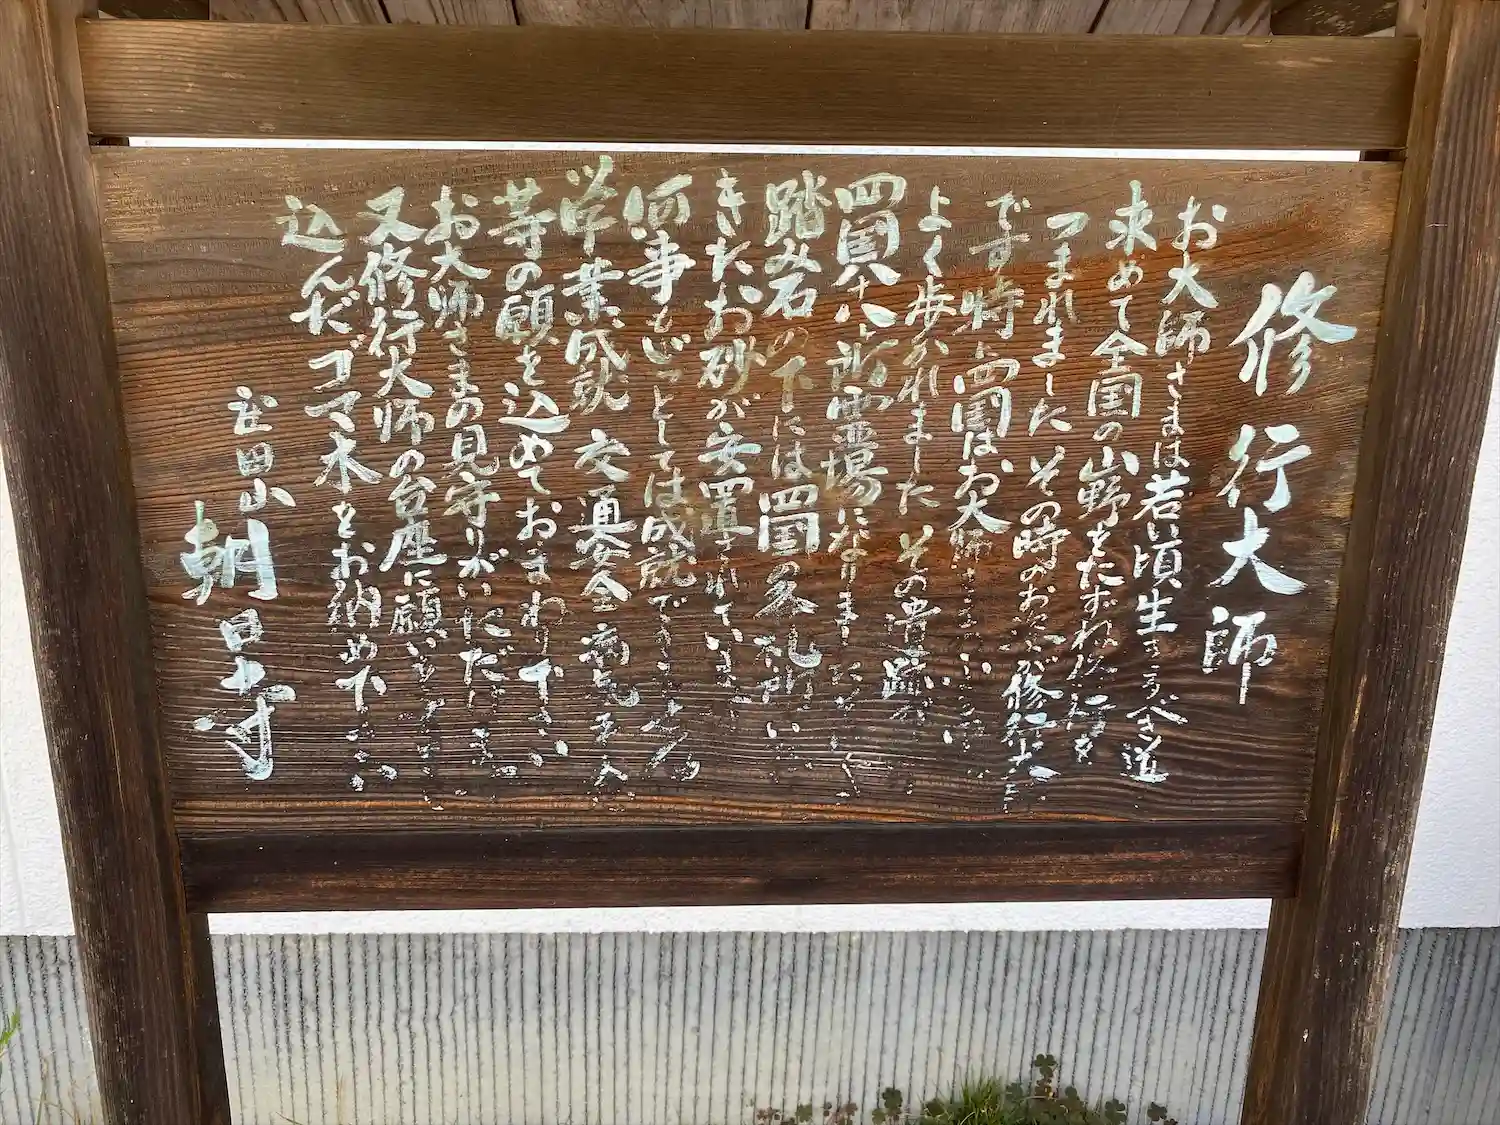 修行大師
お大師さまは若い頃生きるべき道
求めて全国の山野をたずね修行を
つまれました その時のお姿が修行大師
です 特に四国はお大師さまが
よく歩かれました その遺跡が
四国八十八ヶ所霊場になりました
踏み石の下には四国の各札所
きたお砂が安置されています
何事もじっとしては成就
学業成就 交通安全 病気
等の願を込めておまわり下さい
お大師さまの見守りがいただけます
又修行大師の台座に願いを
込んだゴマ木をお納め下さい
山 朝日寺